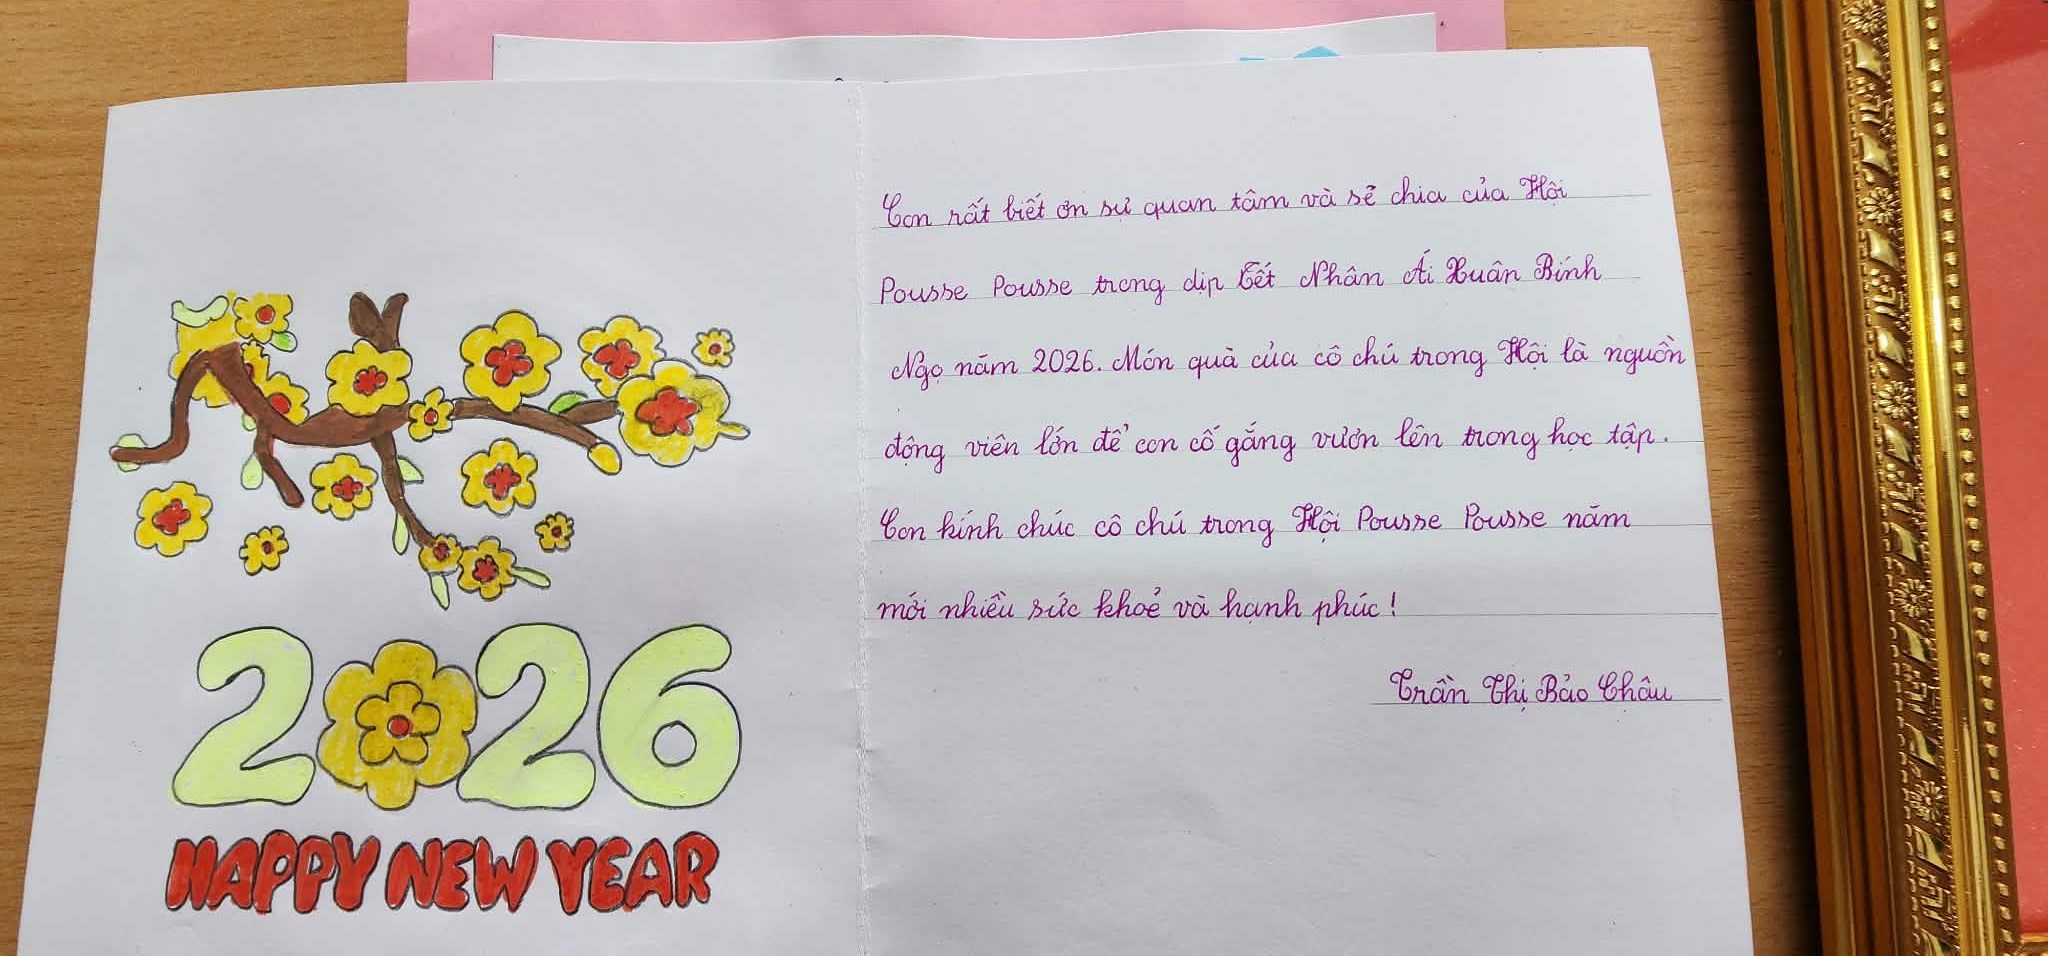 2026
HAPPY NEW YEAR
Con rất biết ơn sự quan tâm và sẽ chia của Hội
Pousse Pousse trong dịp Tết Nhân Ái Xuân Bính
Ngọ năm 2026. Món quà của cô chú trong Hội là nguồn
động viên lớn để con cố gắng vươn lên trong học tập.
Con kính chúc cô chú trong Hội Pousse Pousse năm
mới nhiều sức khoẻ và hạnh phúc!
Trần Thị Bảo Châu